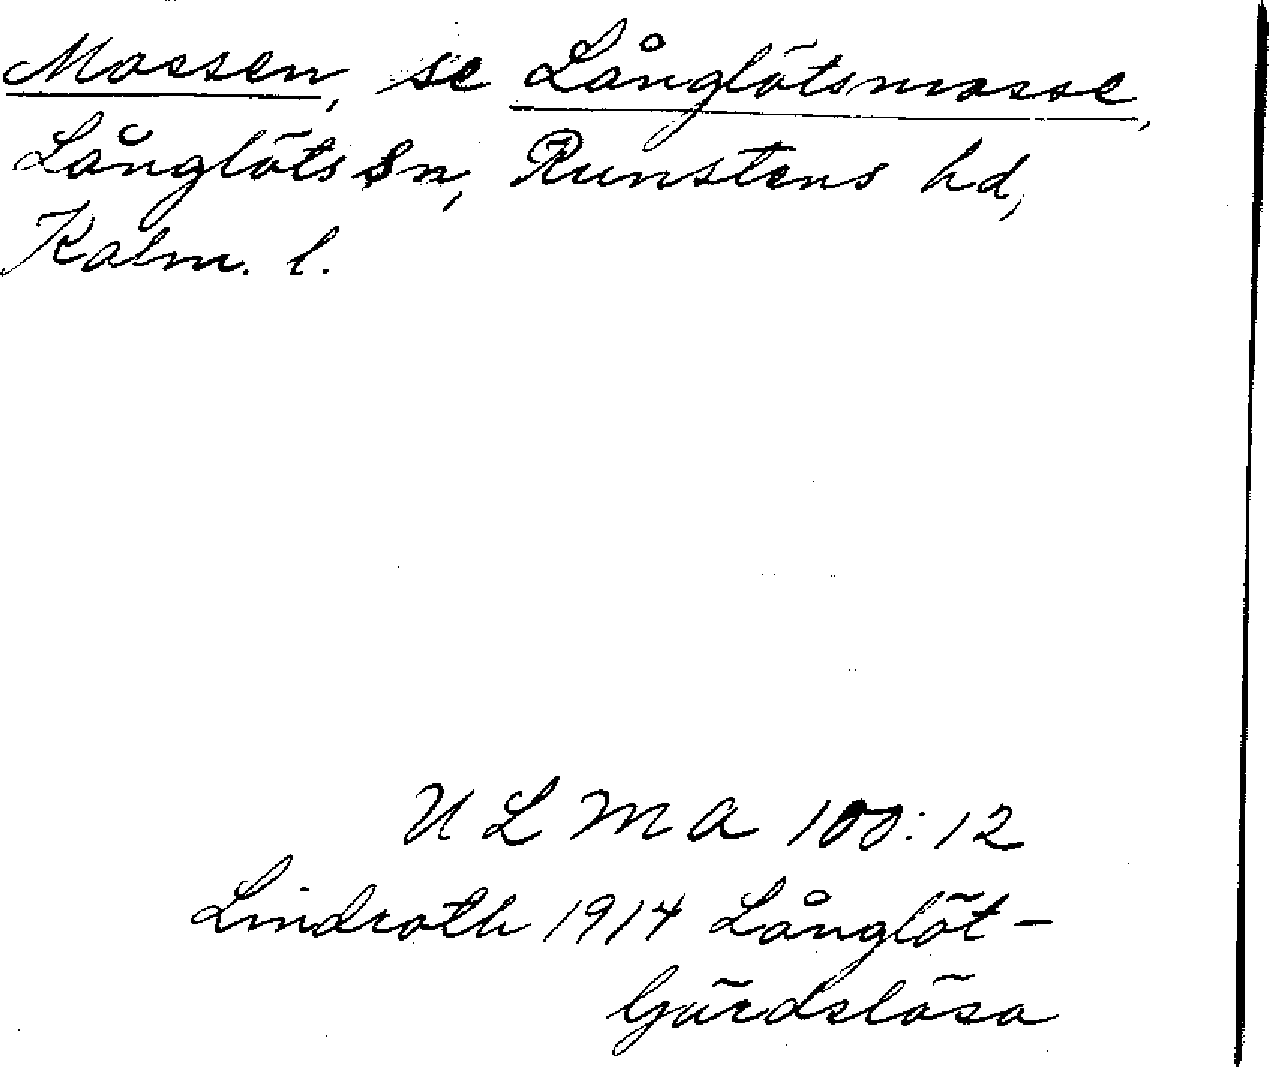 Mossen, se Långlötsmosse,
Långlöts sn, Runstens hd,
Kalm. l.
ULMA 100:12
Lindroth 1914 Långlöt-
Gärdslösa